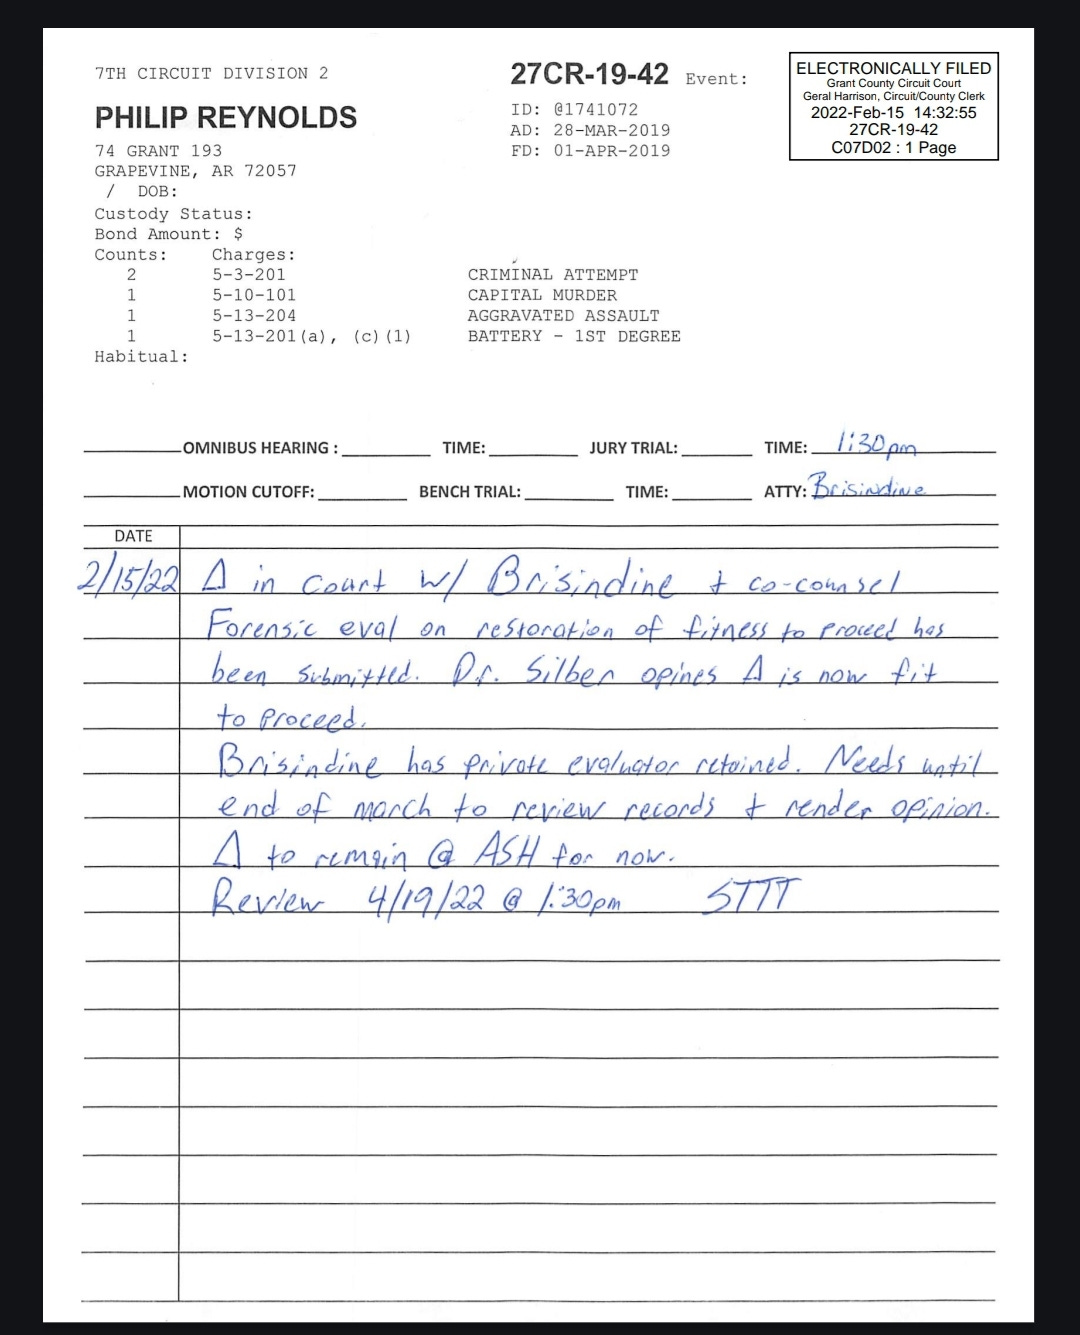 7TH CIRCUIT DIVISION 2
27CR-19-42 Event:
ELECTRONICALLY FILED
Grant County Circuit Court
Geral Harrison, Circuit/County Clerk
2022-Feb-15 14:32:55
27CR-19-42
C07D02 : 1 Page
PHILIP REYNOLDS
ID: @1741072
AD: 28-MAR-2019
FD: 01-APR-2019
74 GRANT 193
GRAPEVINE, AR 72057
/ DOB:
Custody Status:
Bond Amount: $
Counts: Charges:
2 5-3-201 CRIMINAL ATTEMPT
1 5-10-101 CAPITAL MURDER
1 5-13-204 AGGRAVATED ASSAULT
1 5-13-201(a), (c)(1) BATTERY - 1ST DEGREE
Habitual:
OMNIBUS HEARING : TIME: JURY TRIAL: TIME: 1:30pm
MOTION CUTOFF: BENCH TRIAL: TIME: ATTY: Brisindine
DATE
2/15/22 Δ in court w/ Brisindine + co-counsel
Forensic eval on restoration of fitness to proceed has
been submitted. Dr. Silber opines Δ is now fit
to proceed.
Brisindine has private evaluator retained. Needs until
end of march to review records + render opinion.
Δ to remain @ ASH for now.
Review 4/19/22 @ 1:30pm STTT